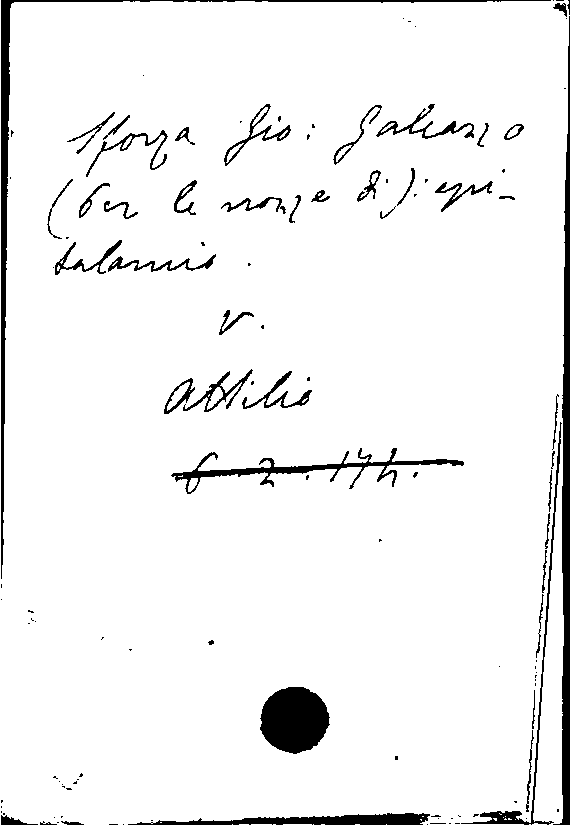 Sforza Gio: Galeazzo
(Per le nozze di): epi-
talamio.
v.
Attilio
6. 2. 174.